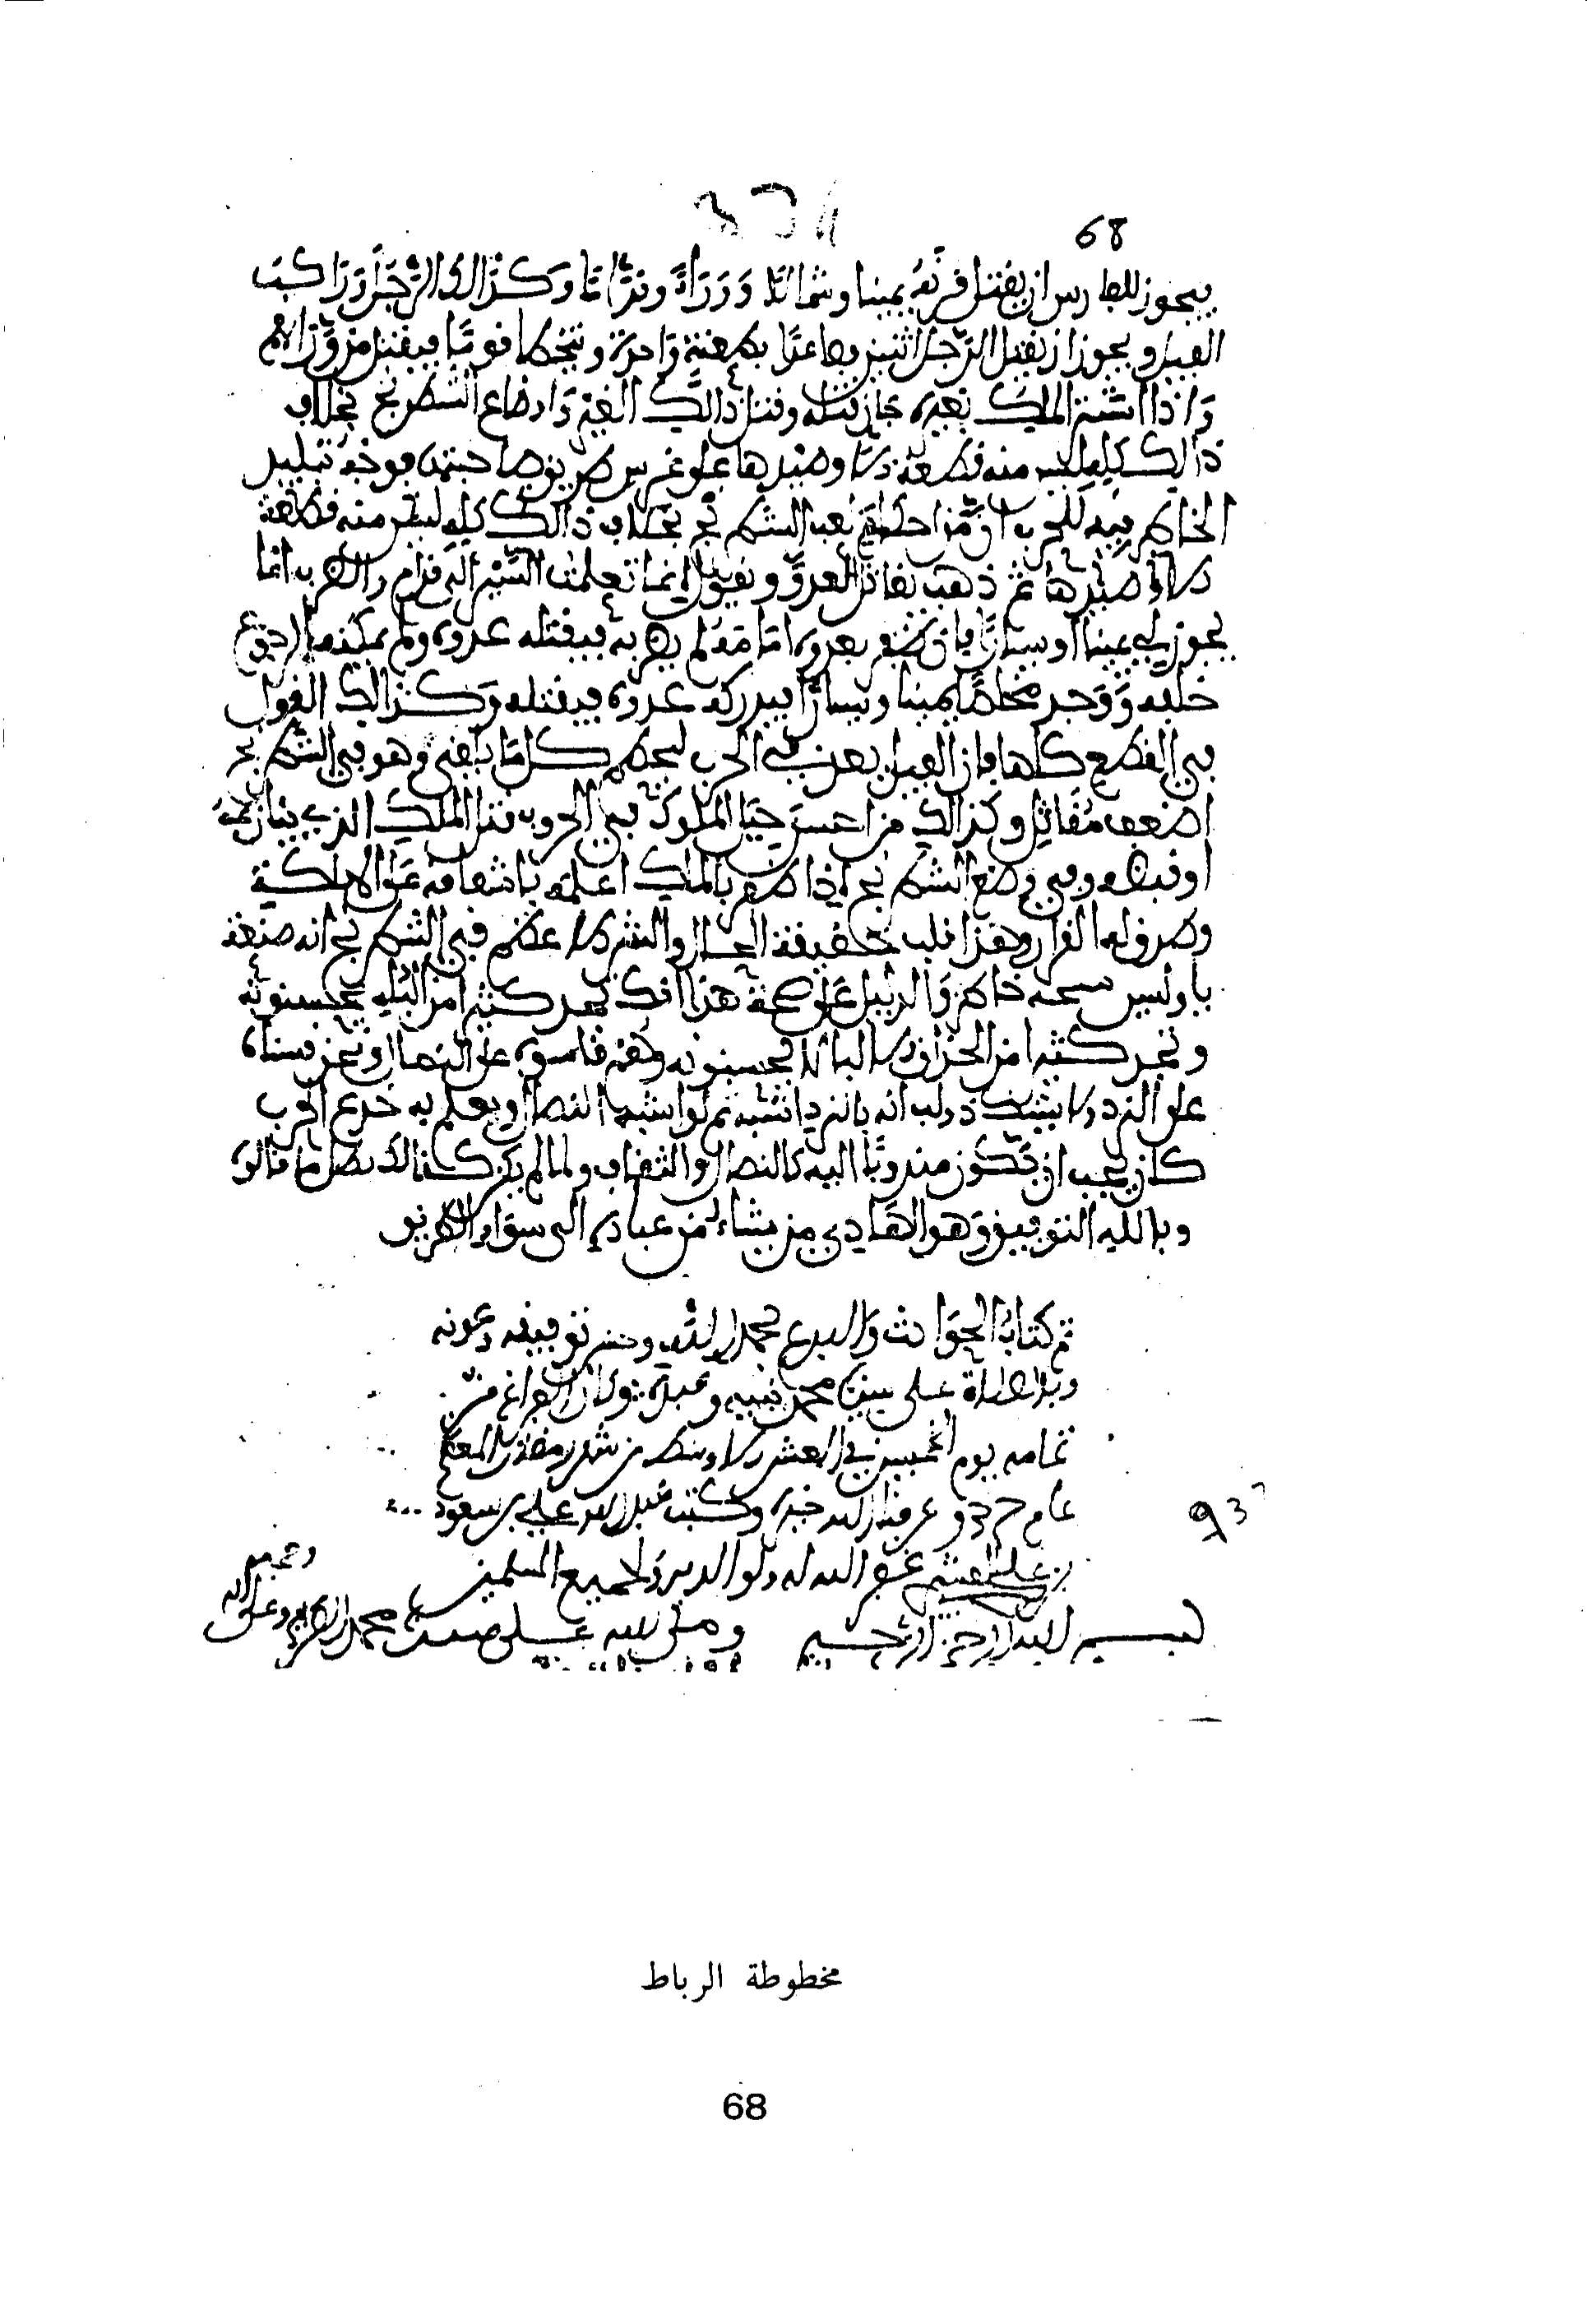 68
فيجوز للفارس ان يقتل قرنه يمينا وشمالا ووراء وقداما وكذالك الرجل وراكب
الفيل ويجوز ان يقتل الرجل اثنين فصاعدا بطعنة واحدة ويتخطا قوما فيقتل من وراءهم
واذا اشتبه الملك بغيره جاز قتله وقتل ذالك الغير واوضاع الشطرنج بخلاف
ذالك كله ليس منه قطعة الا وصيرها على غير طريق صاحبتها فوجه تبليد
الخاطر فيه للحرب ان من احكم لعب الشطرنج بخلاف ذالك كله ليس منه قطعة
الا وصيرها ثم ذهب يقاتل العدو ويقول انما تعلمت السير الى قدام والضرب انما
يجوز لي يمينا او يسارا فان ظفر بعدوه امامه لم يضربه فيقتله عدوه ولم يمكنه الرجوع
خلفه ووجد مخلصا يمينا ويسارا فيدركه عدوه فيقتله وكذالك القول
في القطع كلها فان الفيل يعني في الحرب ليحطم كل ما يلقى وهو في الشطرنج
اضعف مقاتل وكذالك من احسن حيل الملوك في الحروب قتل الملك الذي ينازعه
او قبضه وفي وضع الشطرنج اذا ظفر بالملك اعلمه باشفاقه على الهلكة
وصرف له الفرار وهذا قلب حقيقة الحال والشر الاعظم في الشطرنج انه صنعة
والدليل على صحة هذا انك تجد كثيرا من البله يحسنونه
وتجد كثيرا من الحذاق الالباء لا يحسنونه وهم قاسوه على النضال ونحن قسناه
على النرد ولا يشك ذو لب انه بالنرد اشبه ثم لو اشبه النضال ويعلم به خدع الحرب
كان يجب ان يكون مندوبا اليه كالنضال والثقاف ولما لم يكن كذالك بطل ما قالوه
وبالله التوفيق وهو الهادي من يشاء من عباده الى سواء الطريق
تم كتاب الحوادث والبدع بحمد الله وحسن توفيقه وعونه
والصلاة على سيدنا محمد نبيه وعبده وكان الفراغ من
تمامه يوم الخميس في العشر الاوسط من شهر رمضان المعظم
عام عرفنا الله خيره وكتب عبد الله علي بن سعود
بن علي غفر الله له ولوالديه ولجميع المسلمين
937
بسم الله الرحمن الرحيم وصلى الله على سيدنا محمد الكريم وعلى اله
وصحبه
مخطوطة الرباط
68